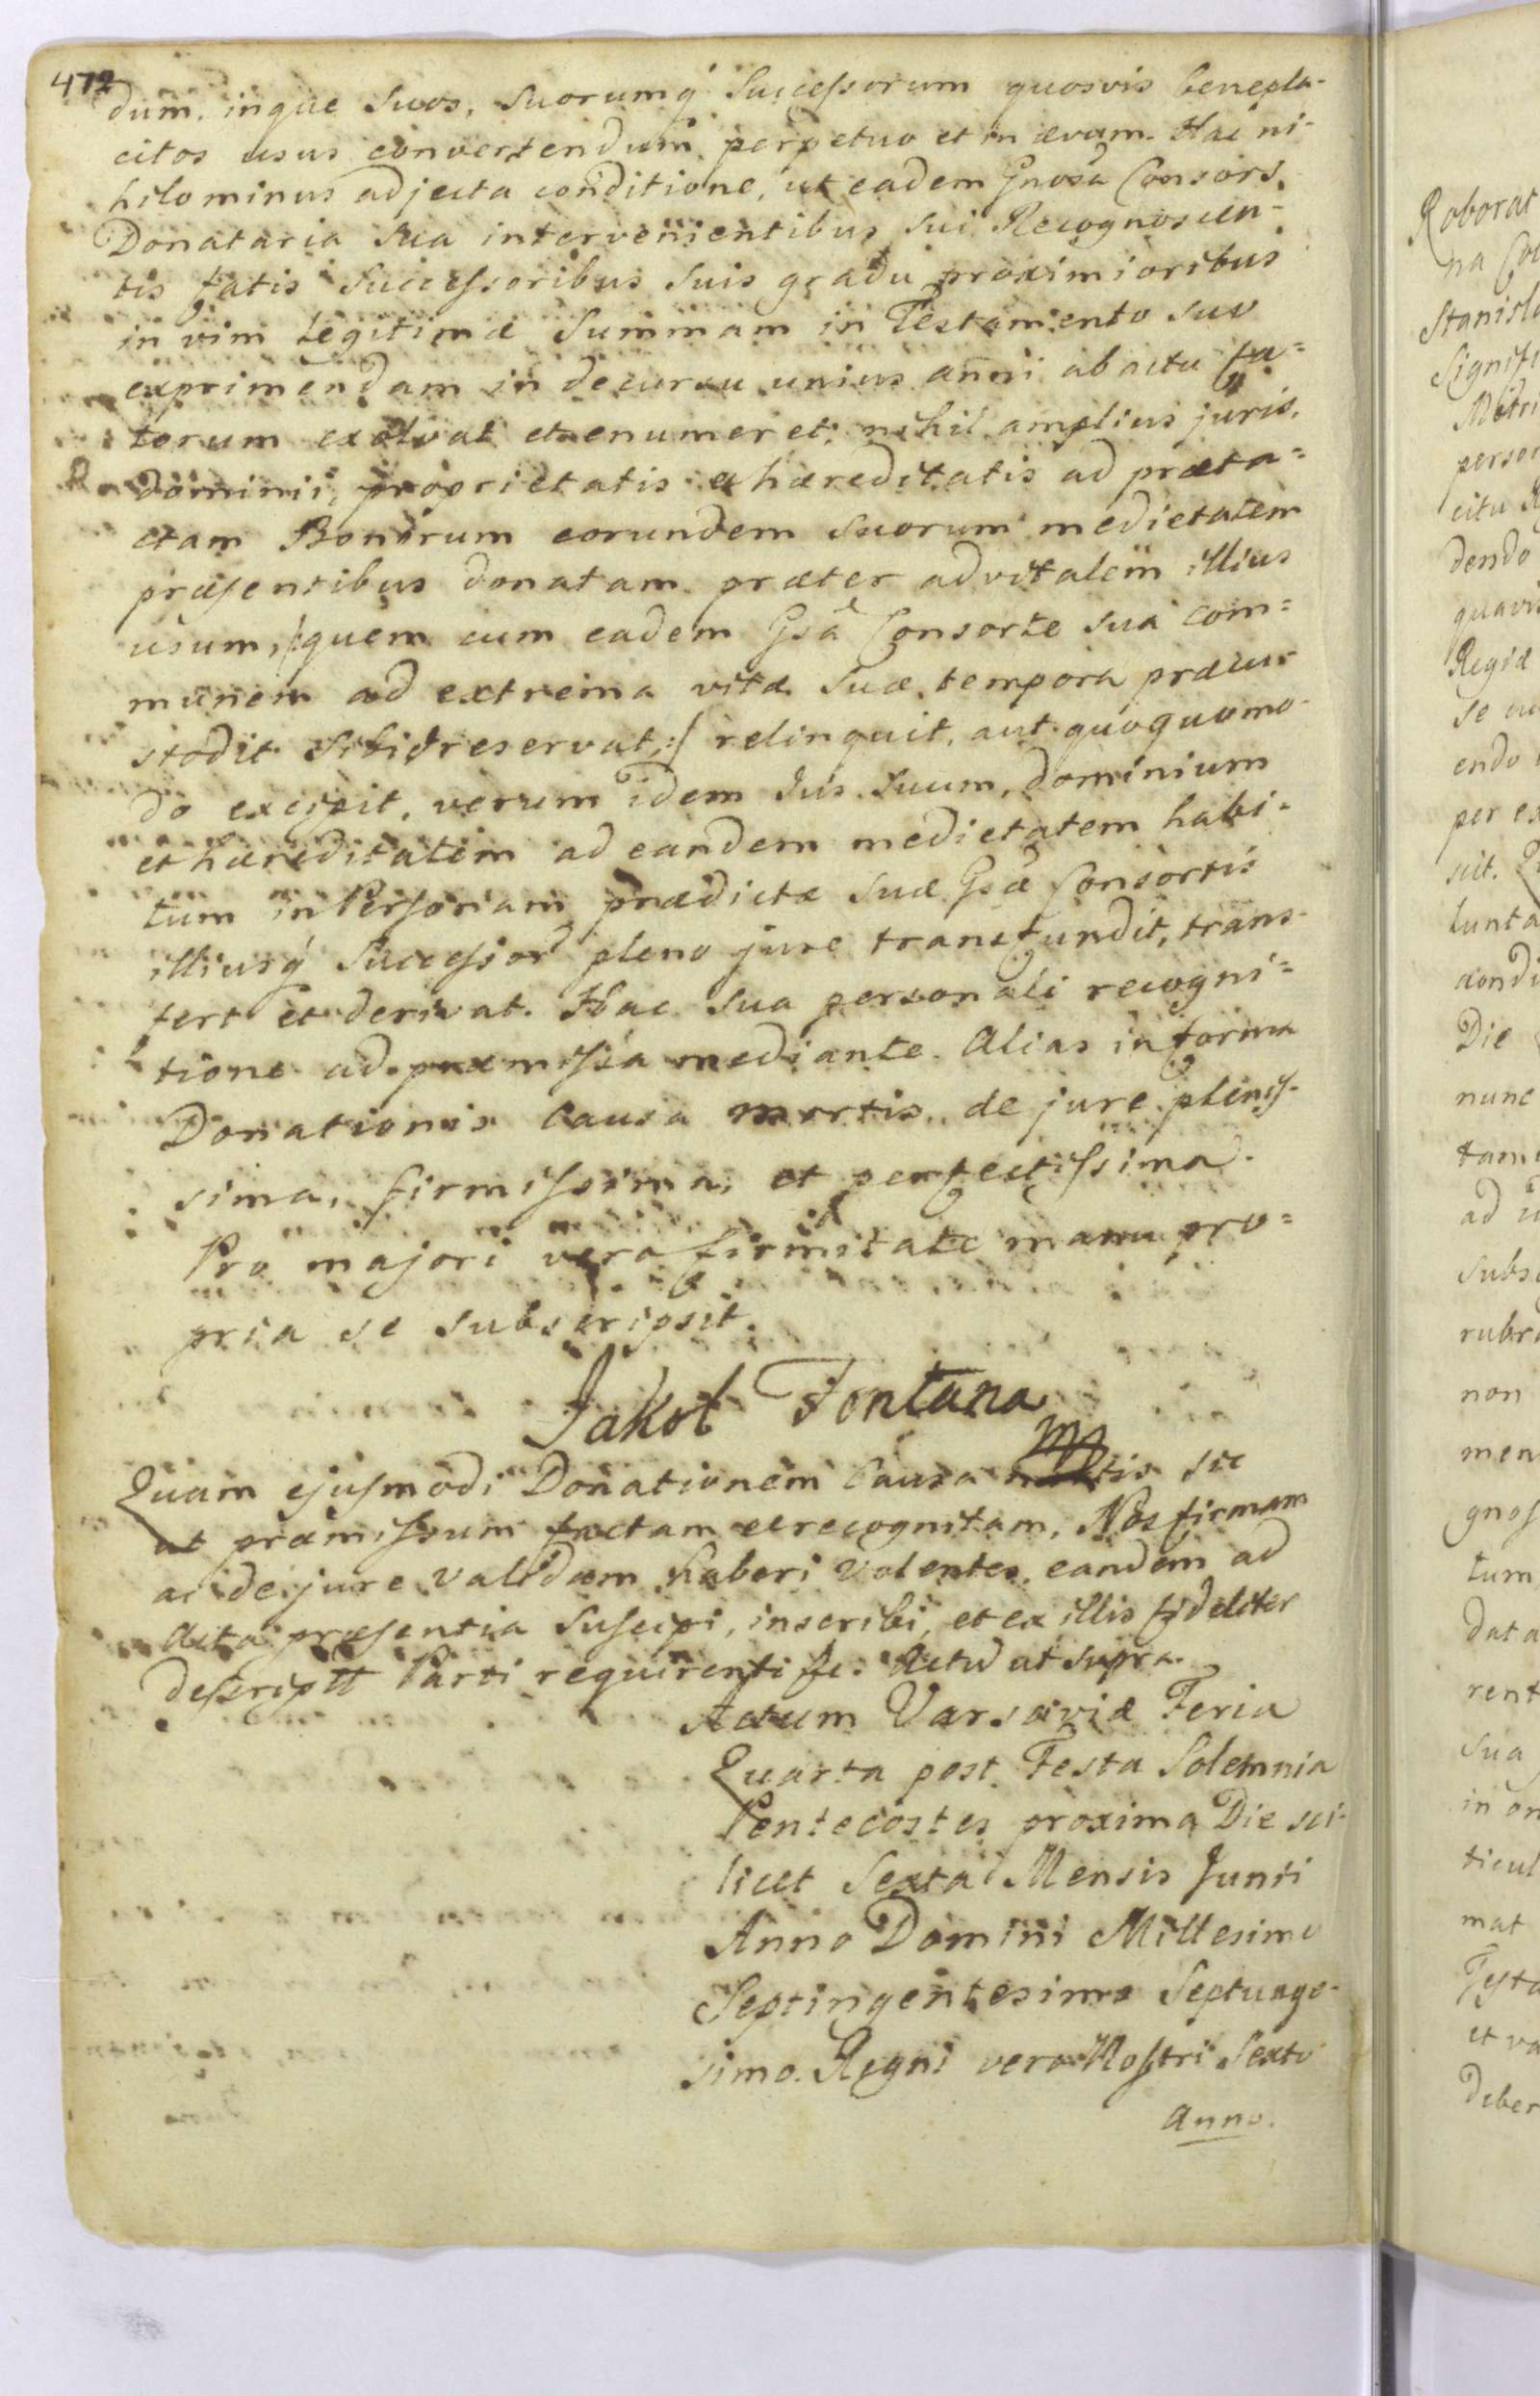 472
dum, inque suos, suorumq́ Successorum quosvis benepla-
citos usus convertendum perpetuo et in ævum. Hac ni-
hilominus adjecta conditione, ut eadem Gnosa Consors,
Donataria sua intervenientibus sui Recognoscen-
tis fatis Successoribus suis gradu proximioribus
in vim Legitimæ Summam in Testamento suo
exprimendam in decursu unius anni ab actu fa=
torum exolvat et enumeret; nihil amplius juris,
dominii, proprietatis et hæreditatis ad præta=
ctam Bonorum eorundem suorum medietatem
præsentibus donatam præter advitalem illius
usum, /:quem cum eadem Gsa Consorte sua com=
munem ad extrema vitæ suæ tempora præcu-
stodit sibiq́ reservat,:/ relinquit, aut quoquomo-
do excipit, verum idem Jus suum, dominium
et hæreditatem ad eandem medietatem habi-
tum in Personam prædictæ suæ Gsæ Consortis
illiusq́ Successor pleno jure transfundit, trans-
fert et derivat. Hac sua personali recogni=
tione ad præmissa mediante. Alias in forma
Donationis causa mortis, de jure pleniss-
sima, firmissima, et perfectissima.
Pro majori vero firmitate manu pro=
pria se subscripsit.
Jakob Fontana
mp
Quam ejusmodi Donationem causa mortis sic
ut præmissum factam et recognitam, Nos firmam
ac de jure validam haberi volentes, eandem ad
Acta præsentia suscipi, inscribi, et ex illis fideliter
descriptt Parti requirenti &c. Actu ut supra.
Actum Varsaviæ Feria
Quarta post Festa Solemnia
Pentecostes proxima Die sci-
licet Sexta Mensis Junii
Anno Domini Millesimo
Septingentesimo Septuage-
simo. Regni vero Nostri Sexto
Anno.
Roborat
na
Stanisl
Signifi
perso
citu
dendo
quavi
Regiæ
se
endo
per ex
scit.
lunta
condi
Die
nunc
tam
ad
subs
rubr
non
men
gnos
tum
data
rent
sua
in on
ticul
mat
Testa
et va
deber